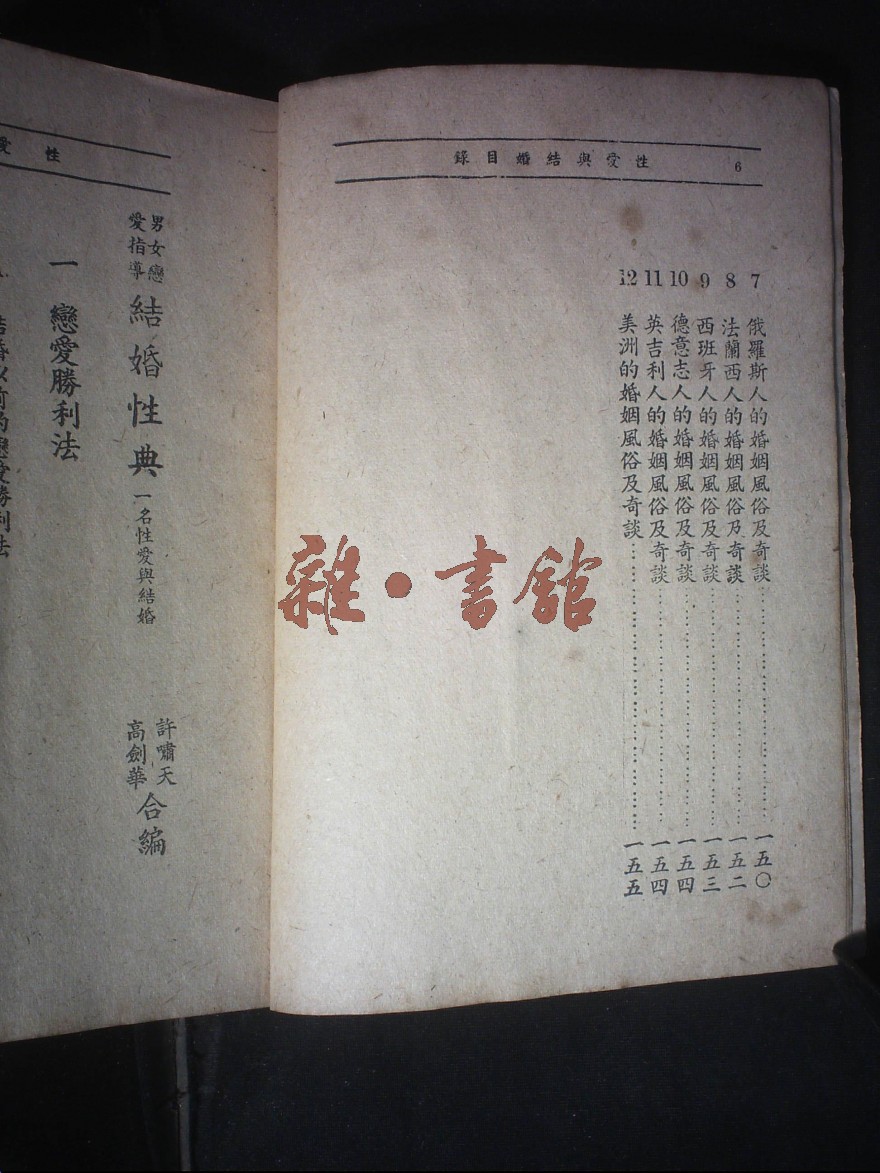 性愛與結婚目錄 6
7 俄羅斯人的婚姻風俗及奇談……一五〇
8 法蘭西人的婚姻風俗及奇談……一五二
9 西班牙人的婚姻風俗及奇談……一五三
10 德意志人的婚姻風俗及奇談……一五四
11 英吉利人的婚姻風俗及奇談……一五四
12 美洲的婚姻風俗及奇談……一五五
雜·書館
性愛
男女戀愛指導
結婚性典
一名性愛與結婚
許嘯天
高劍華
合編
一 戀愛勝利法
結婚以前的戀愛勝利法